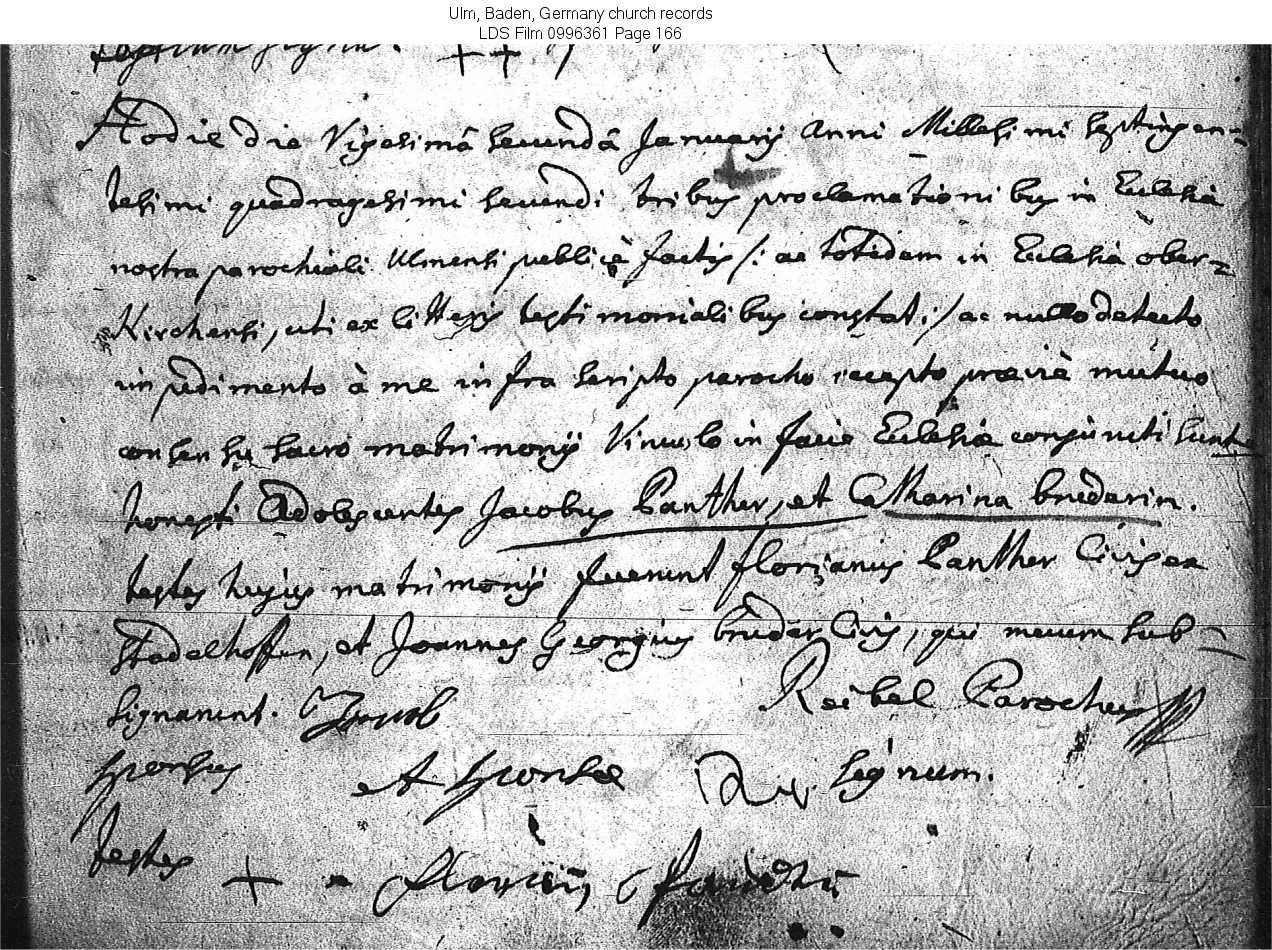 Ulm, Baden, Germany church records
LDS Film 0996361 Page 166
Hodie die Vigesimâ secundâ Januarij Anni Millesimi septingen-
tesimi quadragesimi secundi tribus proclamationibus in Ecclesia
nostra parochiali Ulmensi publicè factis /: ac totidem in Ecclesia ober-
Kirchensi, uti ex litteris testimonialibus constat :/ ac nullo detecto
impedimento à me infra scripto parocho accepto prævié mutuo
consensu sacro matrimonij Vinculo in facie Ecclesiæ conjuncti sunt
honesti Adolescentes Jacobus Panther, et Catharina bruderin.
testes hujus matrimonij fuerunt florianus Panther Civis ex
Stadelhoffen, et Joannes Georgius bruder Civis, qui mecum sub-
signarunt. Jacob
Reibel Parochus
sponsus et sponsæ signum.
testes + florian